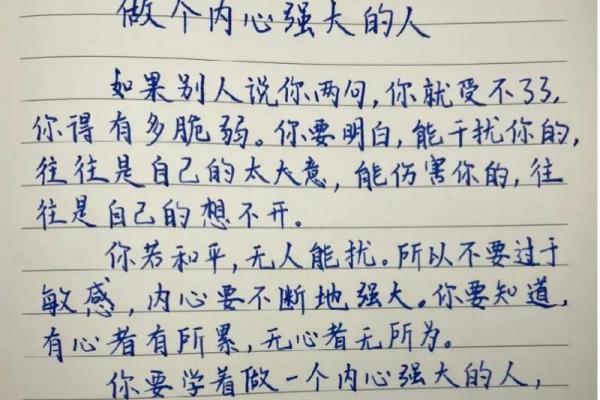 做个内心强大的人
如果别人说你两句,你就受不了了,
你得有多脆弱。你要明白,能干扰你的,
往往是自己的太大意,能伤害你的,往
往是自己的想不开。
你若和平,无人能扰。所以不要过于
敏感,内心要不断地强大。你要知道,
有心者有所累,无心者无所为。
你要学着做一个内心强大的人,